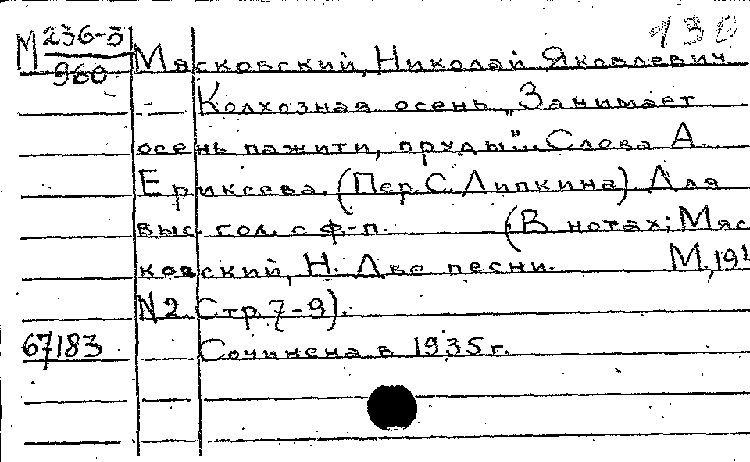 М 236-5 130
960 Мясковский, Николай Яковлевич
Колхозная осень „Занимает
осень пажити, пруды"... Слова А
Ериксева. (Пер. С. Липкина) Для
выс. гол. с ф-п. (В нотах: Мяс
ковский, Н. Две песни. М., 191
N2 Стр. 7-9).
67183 Сочинена в 1935 г.